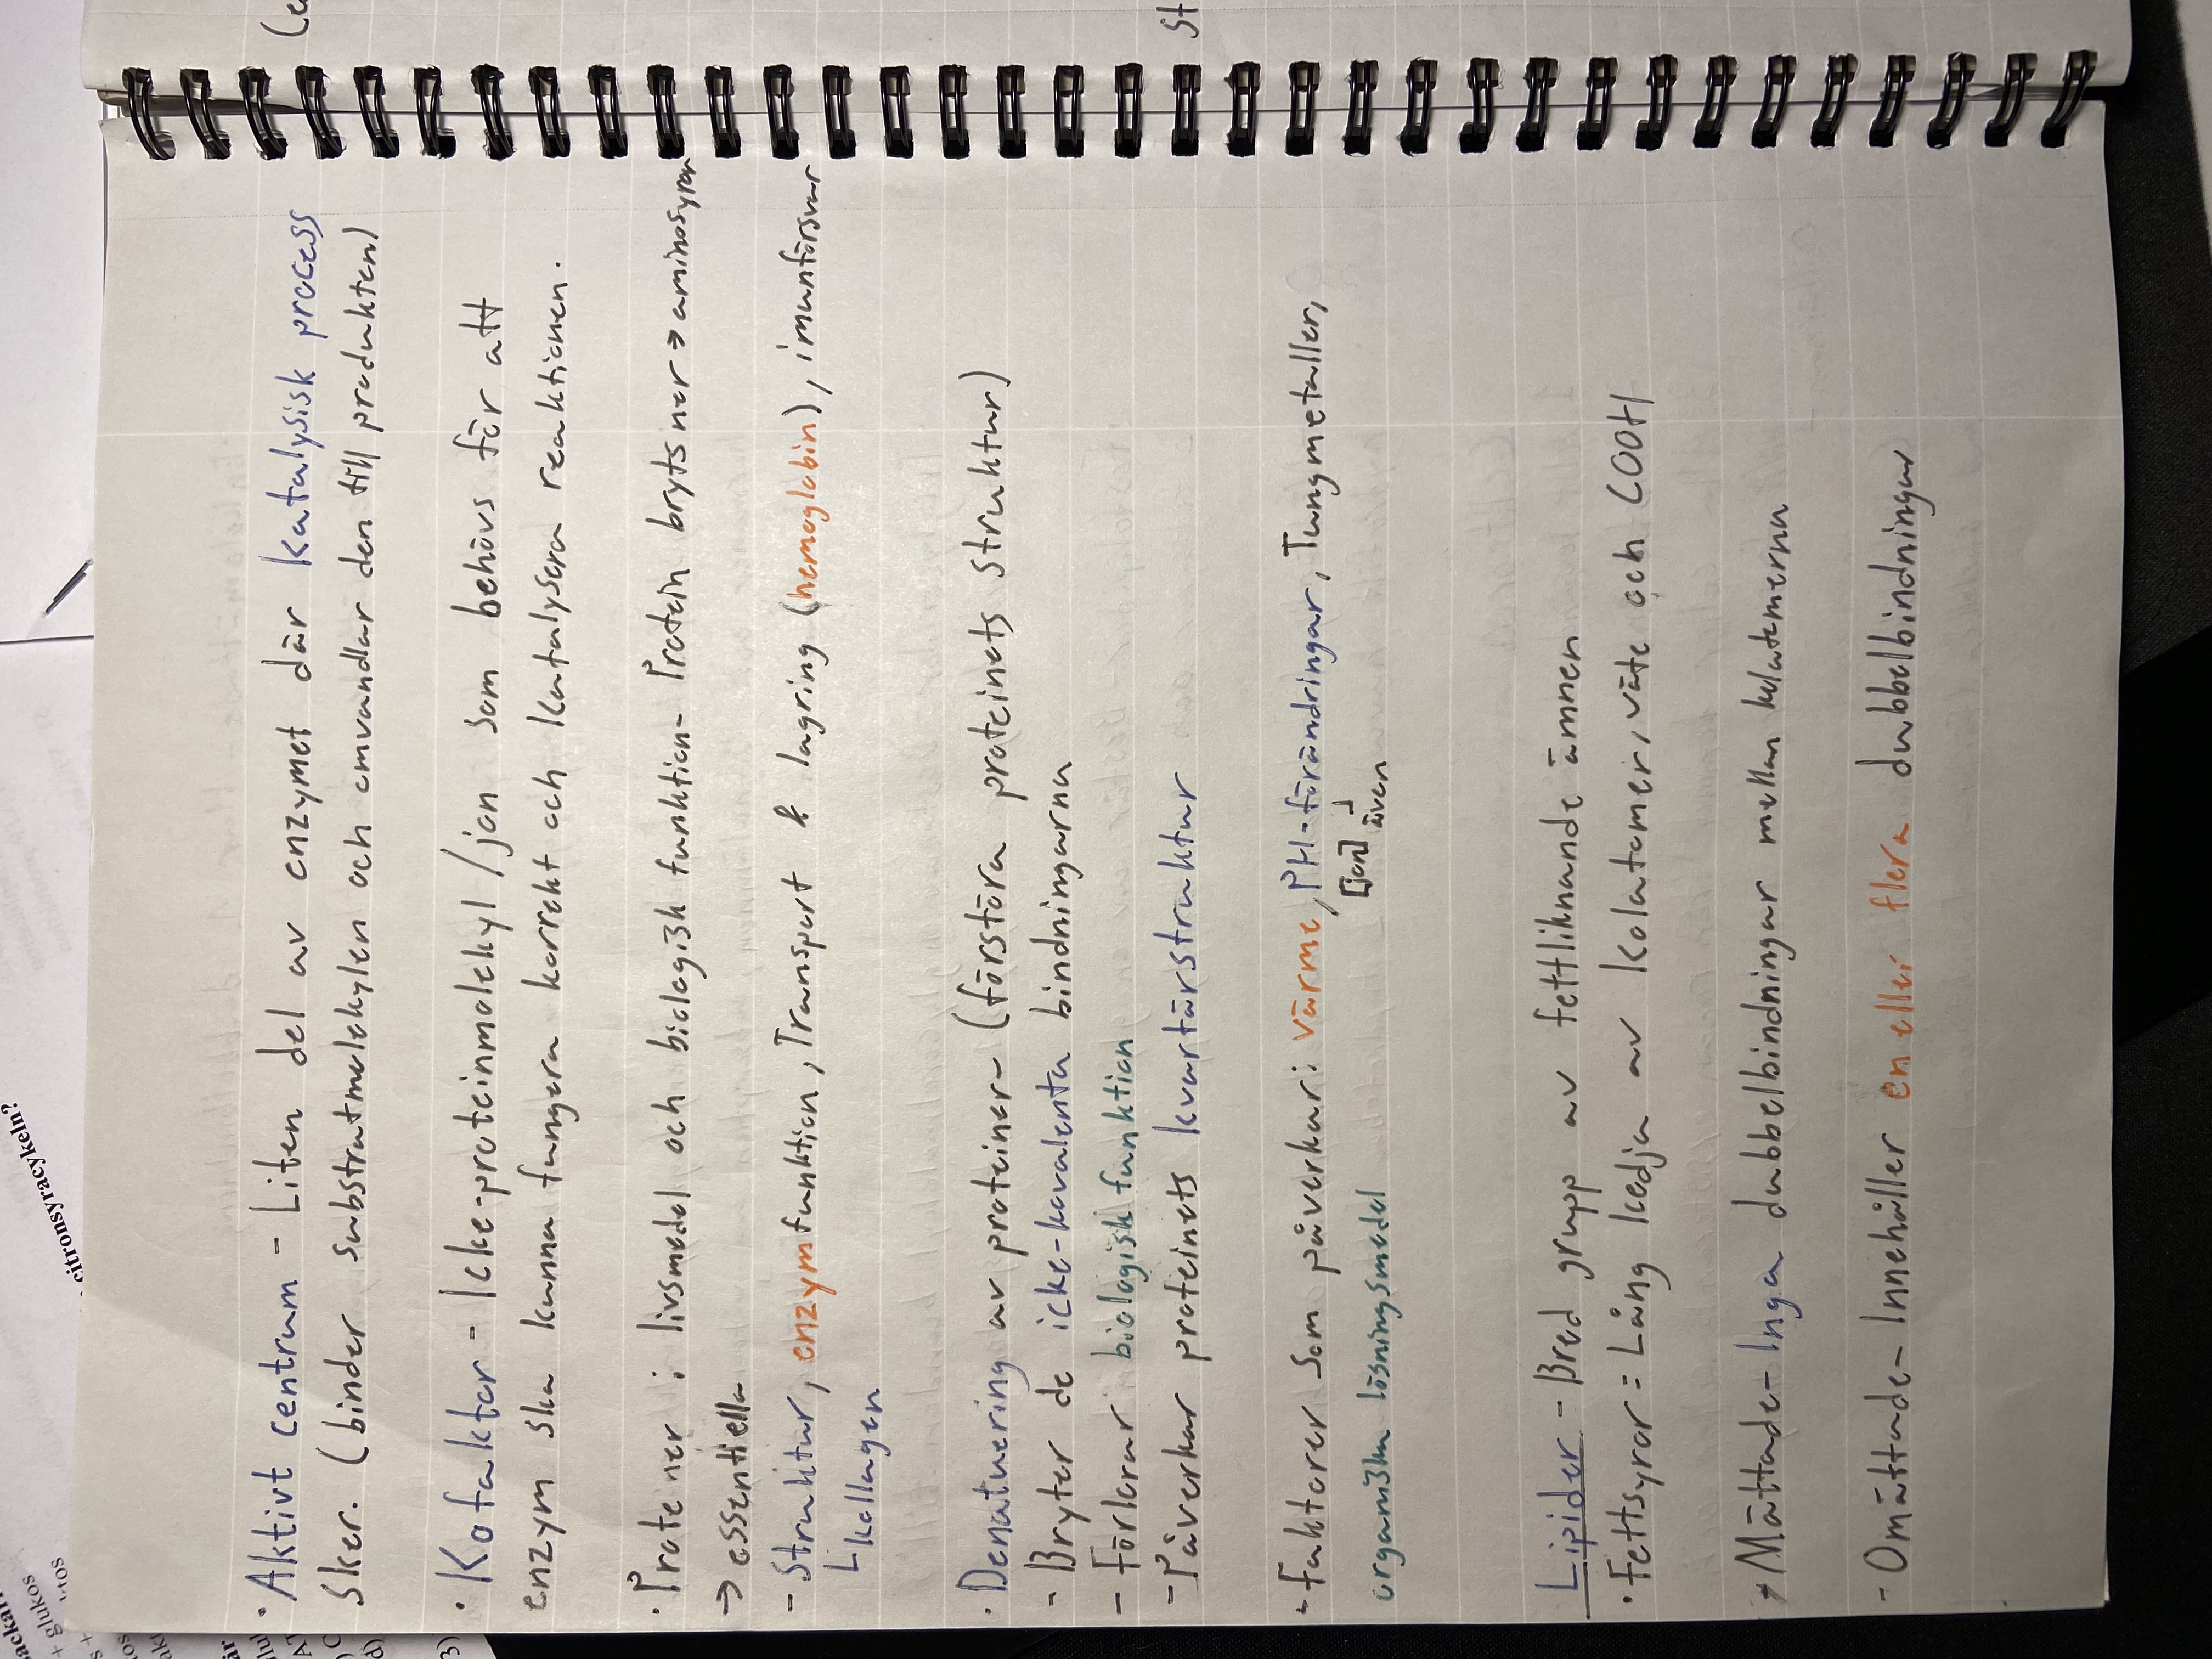 + glukos
citronsyracykeln?
3)
d)
· Aktivt centrum - Liten del av enzymet där katalysisk process
sker. (binder substratmolekylen och omvandlar den till produkten)
· Kofaktor - Icke-proteinmolekyl/jon som behövs för att
enzym ska kunna fungera korrekt och katalysera reaktionen.
· Proteiner i livsmedel och biologisk funktion- Protein bryts ner → aminosyror
→ essentiella
- Struktur, enzymfunktion, Transport & lagring (hemoglobin), imunförsvar
kollagen
· Denatuering av proteiner- (förstöra proteinets struktur)
- Bryter de icke-kovalenta bindningarna
- Förlorar biologisk funktion
- Påverkar proteinets kvartärstruktur
- Faktorer som påverkar: värme, PH-förändringar, Tungmetaller,
[jon] även
organiska lösningsmedel
Lipider - Bred grupp av fettliknande ämnen
· Fettsyror = Lång kedja av kolatomer, väte och COOH
- Mättade- Inga dubbelbindningar mellan kolatomerna
- Omättade- Innehåller en eller flera dubbelbindningar
St